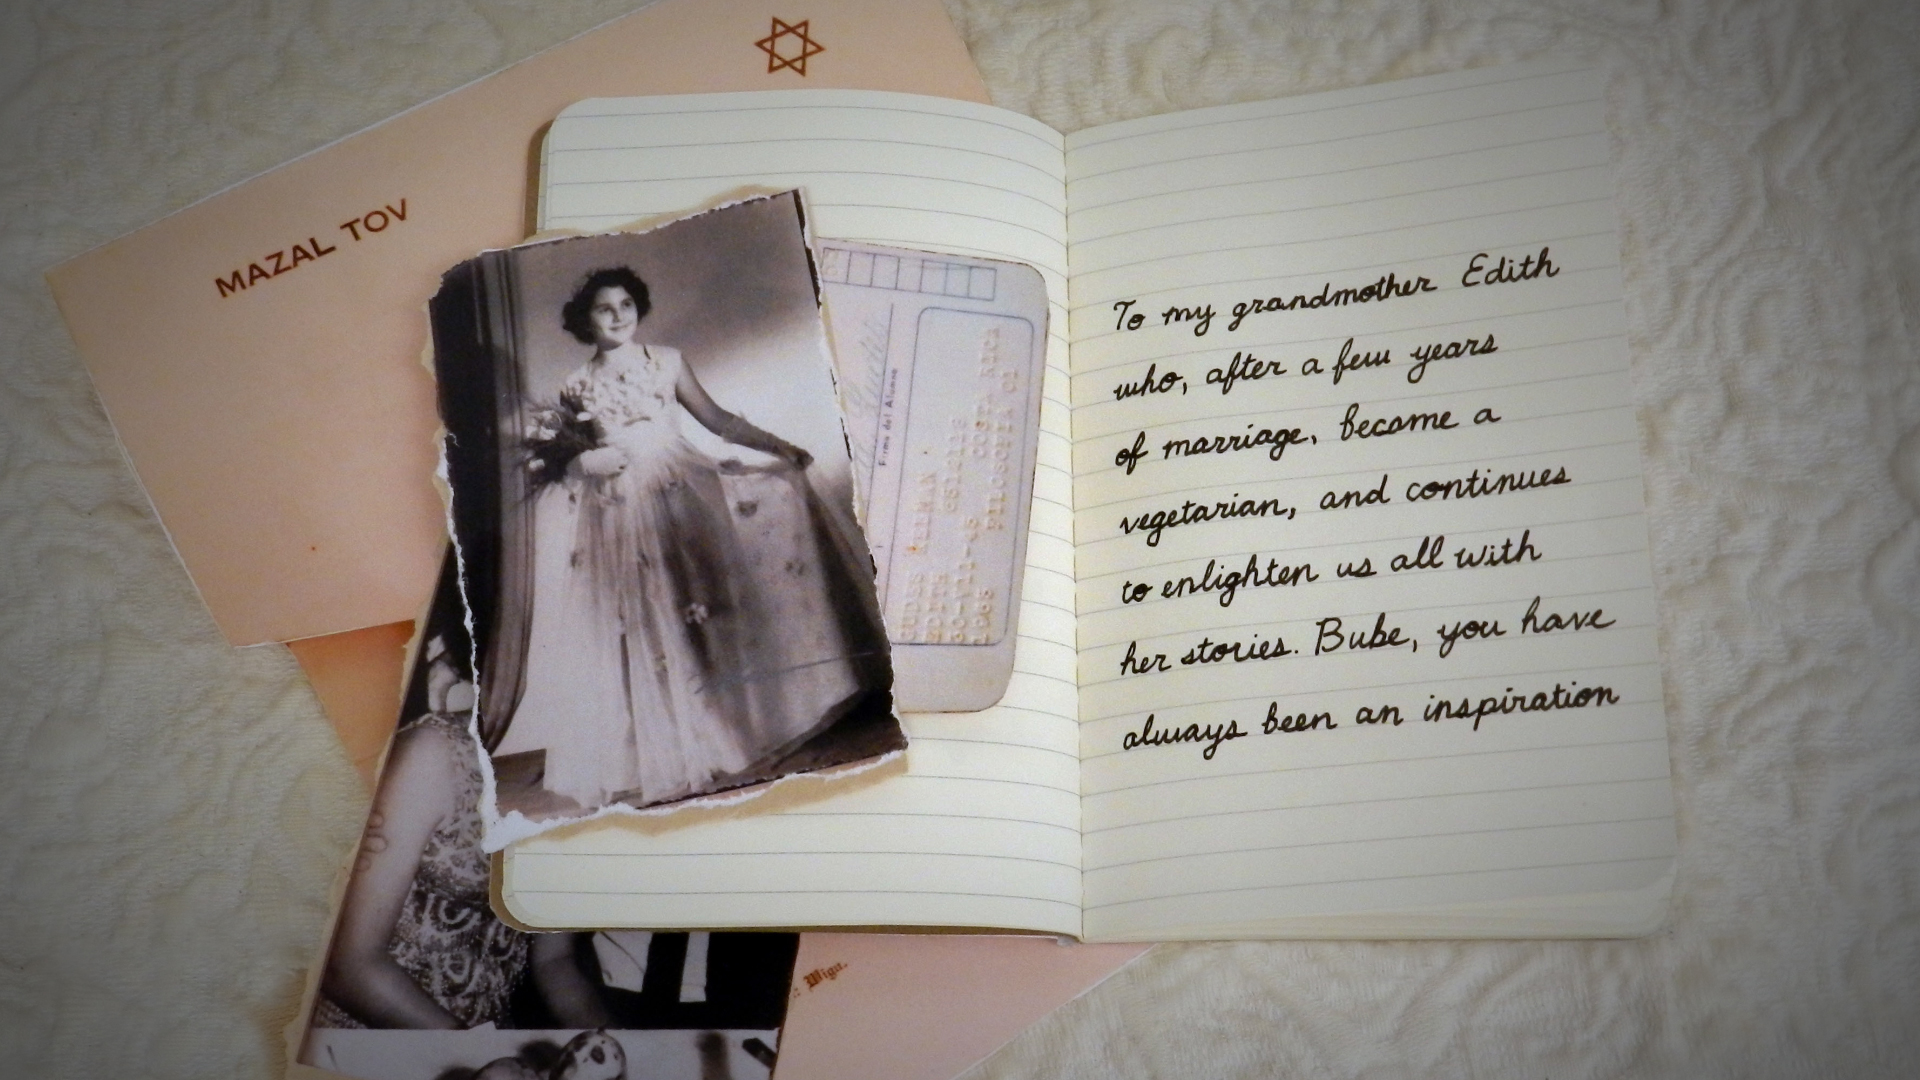 MAZAL TOV
Firma del Alumno
EDITH
COSTA RICA
1965 FILOSOFIA 01
To my grandmother Edith
who, after a few years
of marriage, became a
vegetarian, and continues
to enlighten us all with
her stories. Bube, you have
always been an inspiration